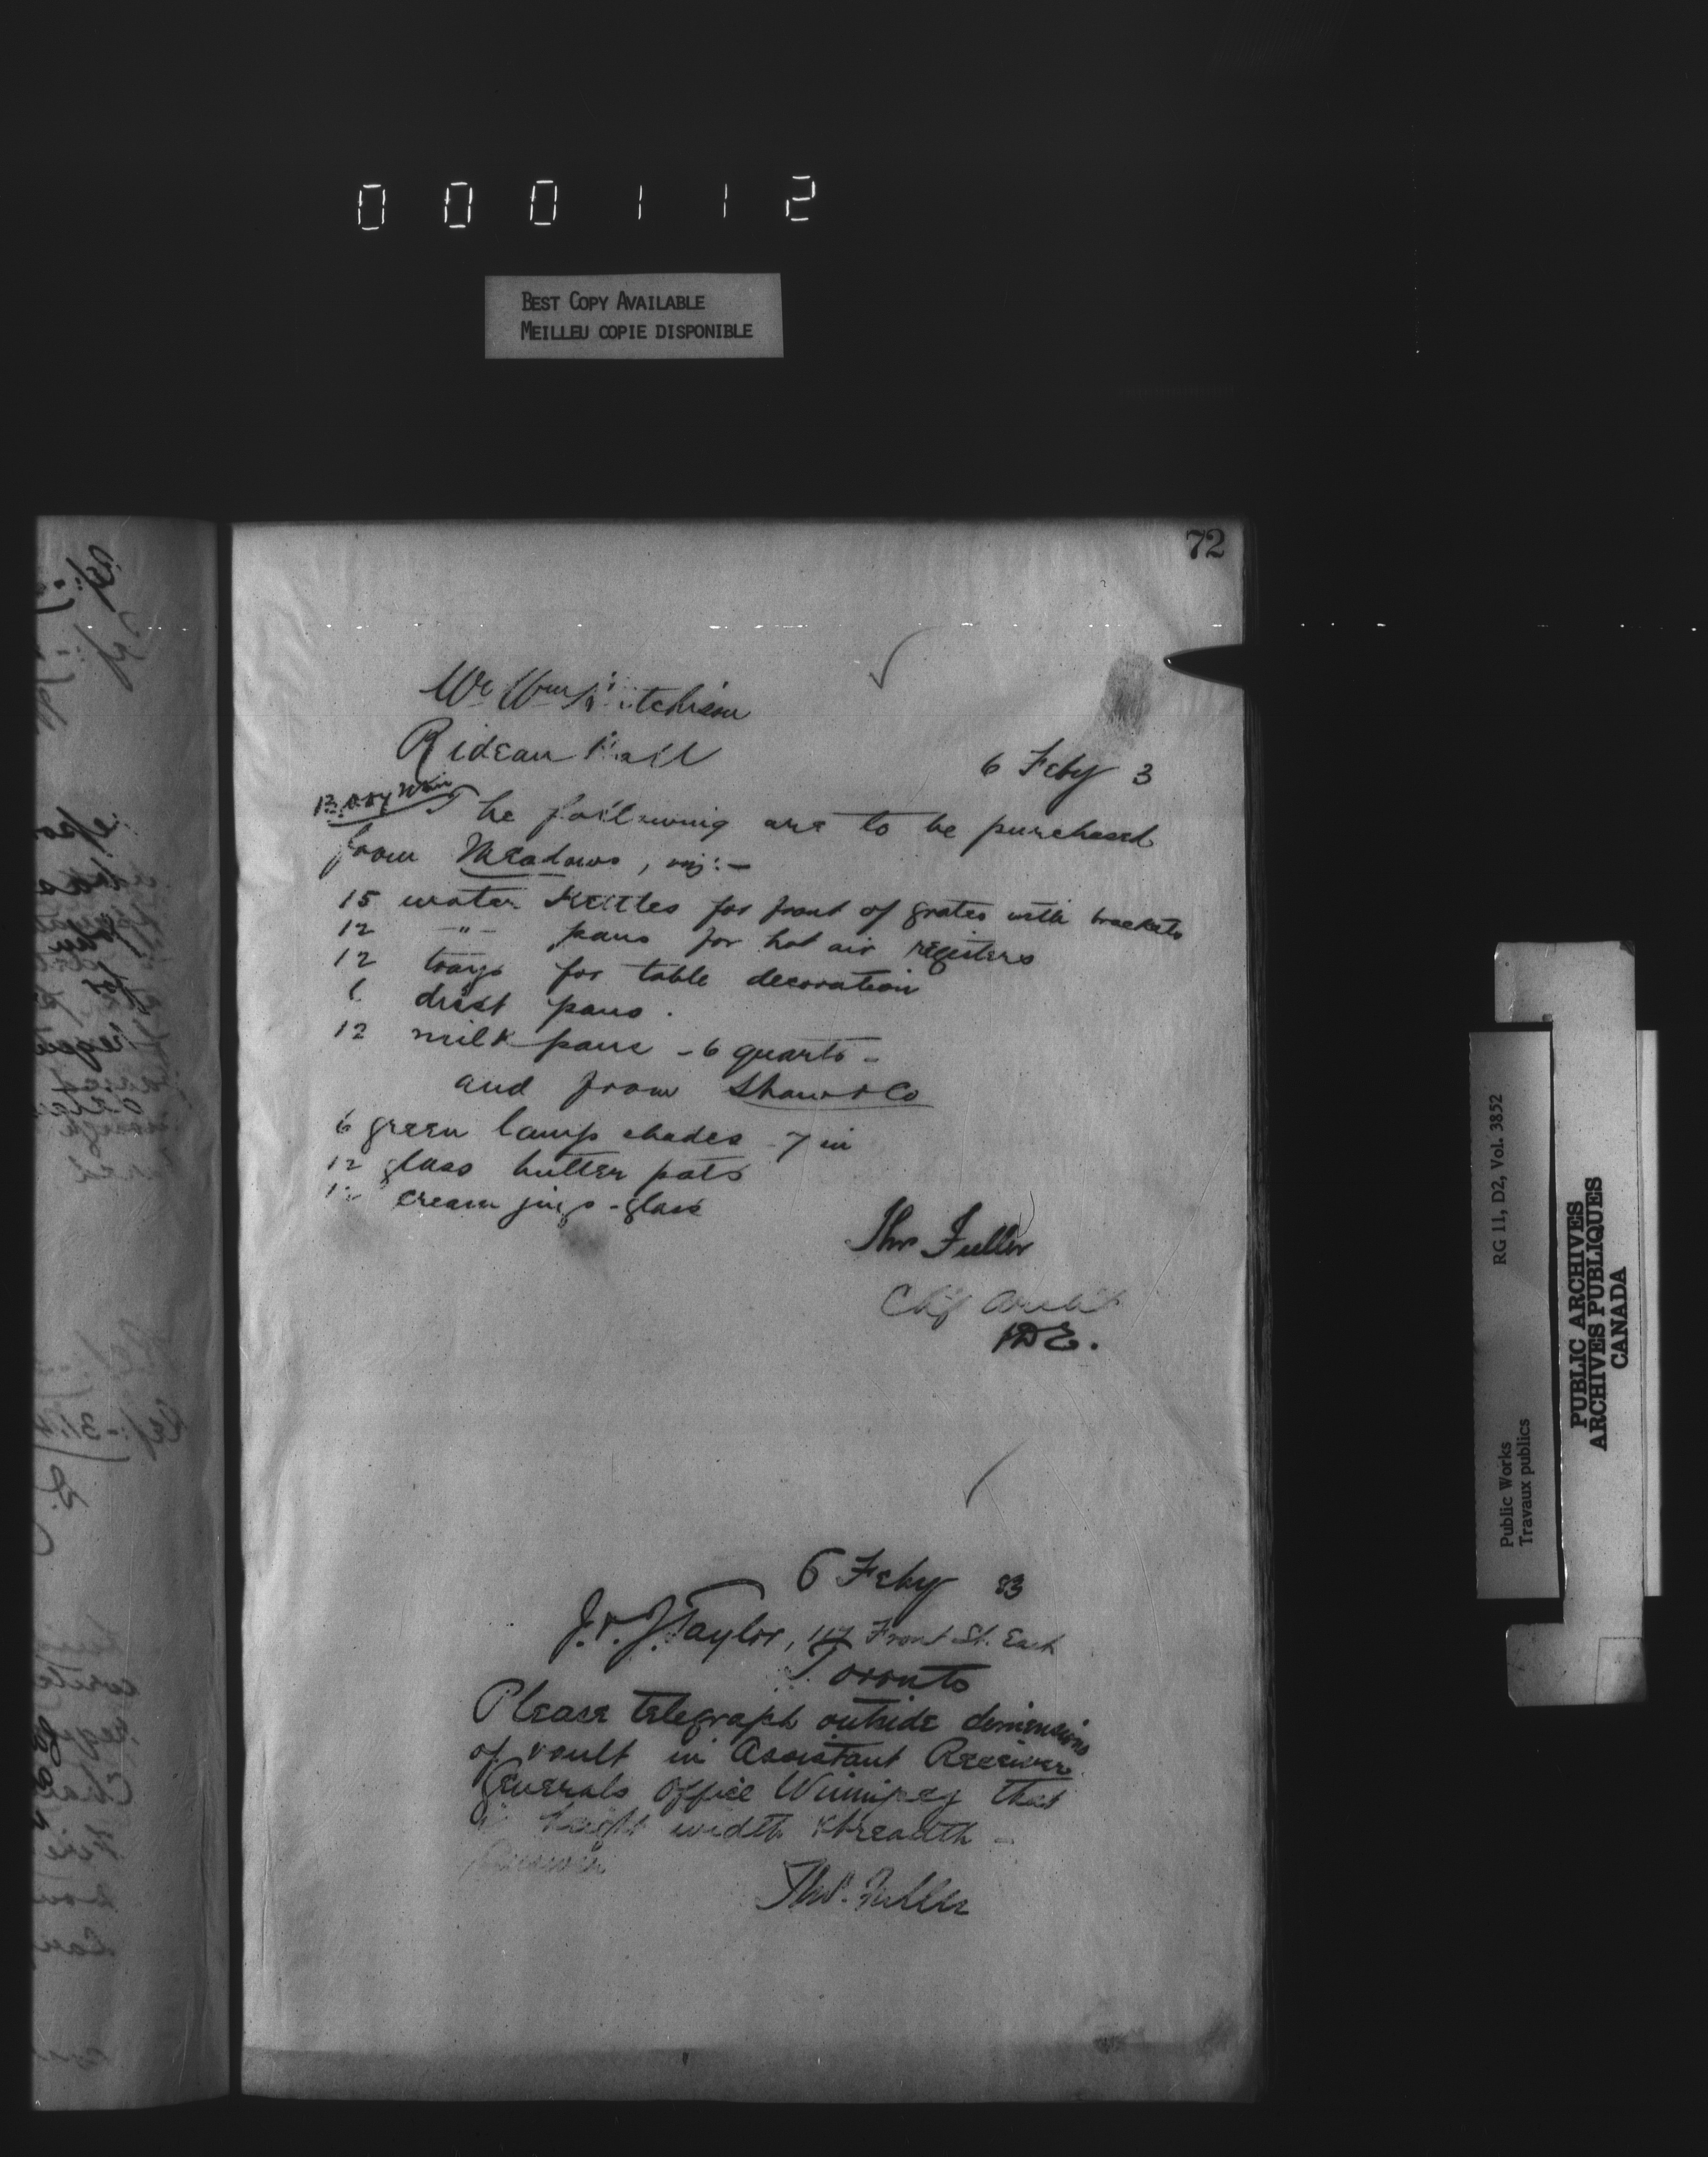 000112
BEST COPY AVAILABLE
MEILLEU COPIE DISPONIBLE
72
Mr Wm Hutchison
Rideau Hall
6 Feby 3
The following are to be purchased
from Meadows, viz:-
15 water Kettles for front of grates with brackets
12 -"- pans for hot air registers
12 trays for table decoration
6 dust pans.
12 milk pans - 6 quarts -
and from Shaw & Co
6 green lamp shades - 7 in
12 glass butter pats
12 cream jugs - glass
Thos Fuller
Chf Archt
6 Feby 83
J. & J. Taylor, 117 Front St. East
Toronto
Please telegraph outside dimensions
of vault in Assistant Receiver
Generals Office Winnipeg that
is height width & breadth -
Thos. Fuller
RG 11, D2, Vol. 3852
Public Works
Travaux publics
PUBLIC ARCHIVES
ARCHIVES PUBLIQUES
CANADA